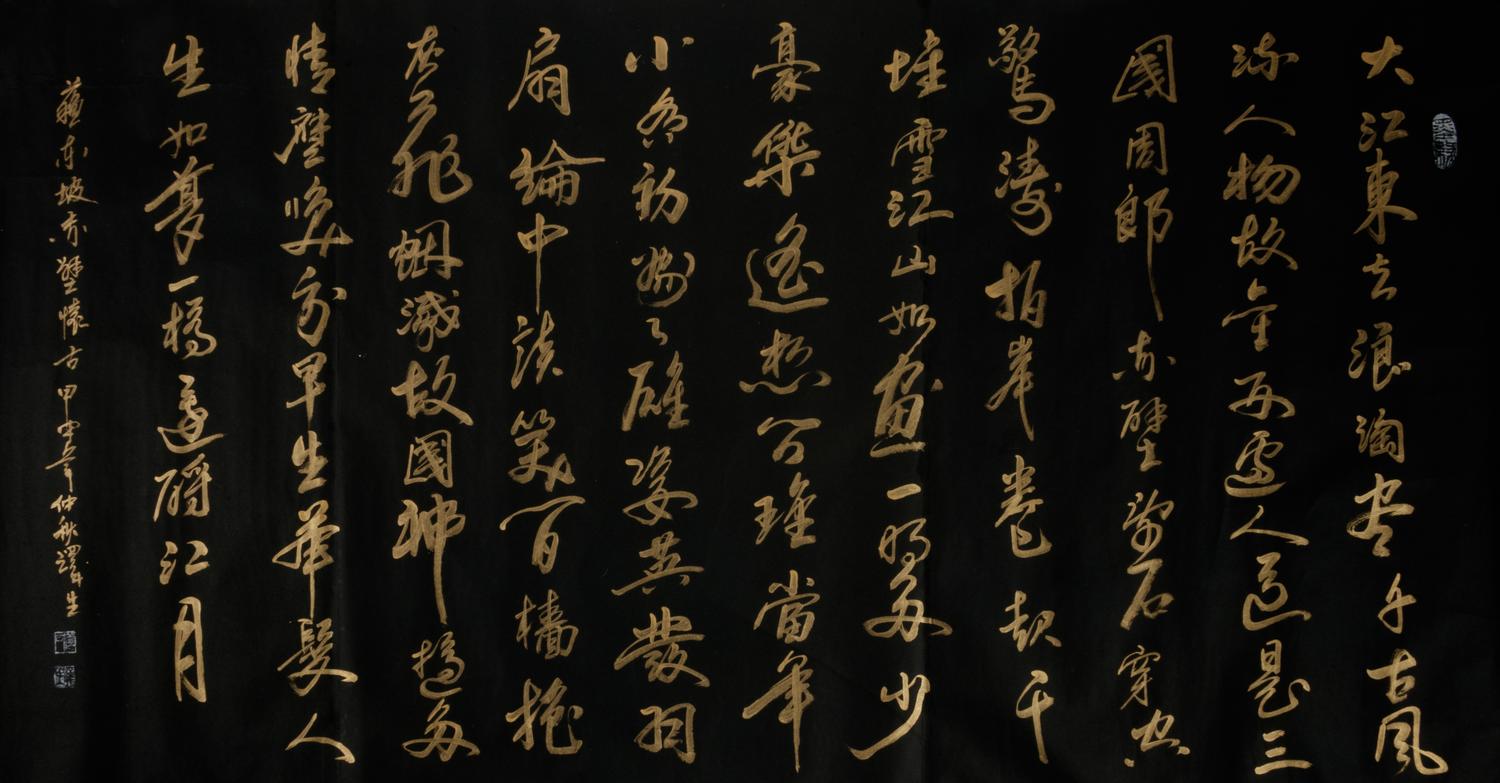 大江東去浪淘尽千古風
流人物故壘西邊人道是三
國周郎赤壁亂石穿空
驚濤拍岸卷起千
堆雪江山如畫一時多少
豪傑遙想公瑾當年
小喬初嫁了雄姿英發羽
扇綸巾談笑間檣櫓
灰飛烟滅故國神遊多
情應笑我早生華髮人
生如夢一樽還酹江月
蘇東坡赤壁懷古甲申年仲秋澤生